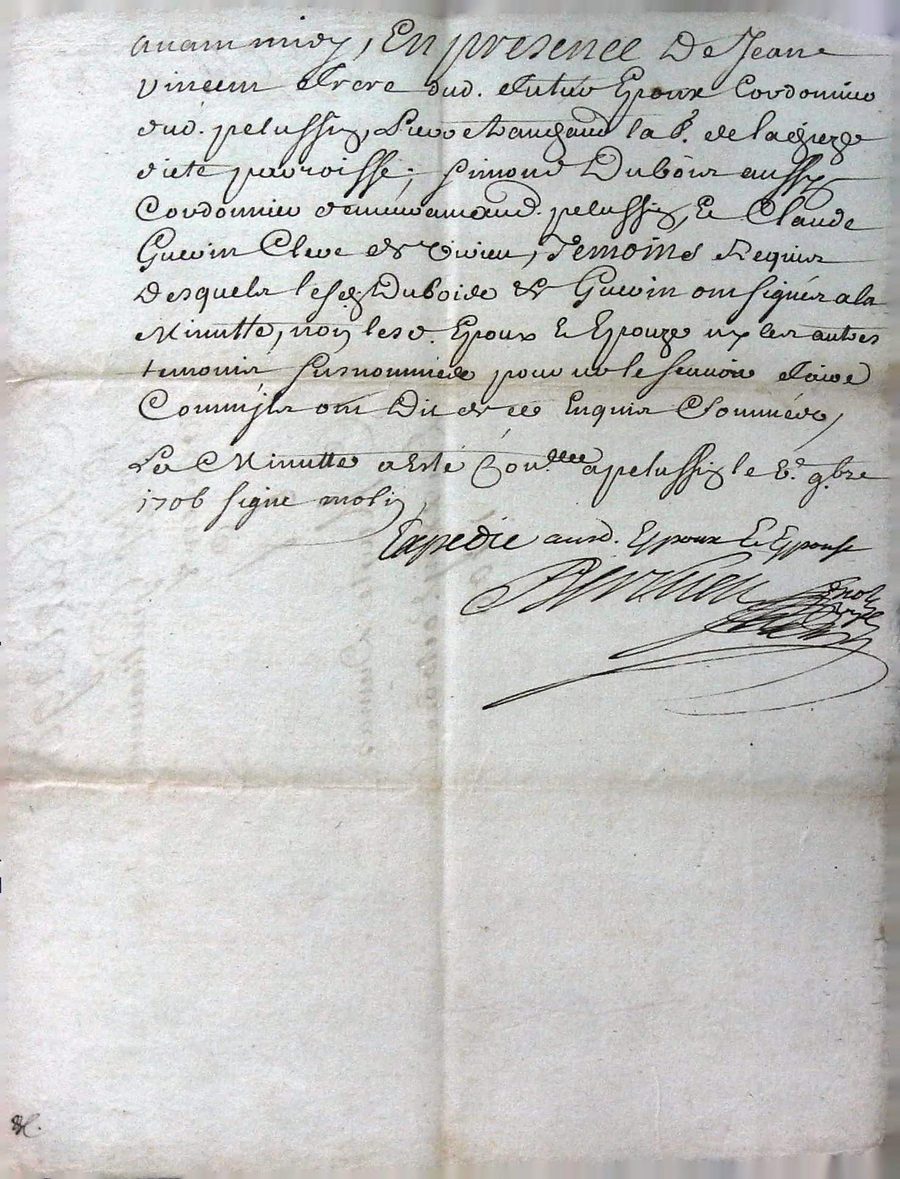 avant midy, En presence De Jean
Vincent frere dud. futur Epoux Cordonnier
dud. pelussin, Pierre Chaugaud la P. de
dicte parroisse; Simond Dubois aussy
Cordonnier demeurant aud. pelussin, Et Claude
Guerin Clerc de Virieu, Temoins Requis
Desquels les Srs Dubois & Guerin ont signés a la
Minutte, non lesd. Epoux & Epouze ny les autres
temoins surnommés pour ne le sçavoir faire
Comm'jls ont Dit de ce Enquis & sommés,
La Minutte a Esté Con.llée a pelussin le 8e 9bre
1706 signé molin
Expedié ausd. Epoux Et Epouse